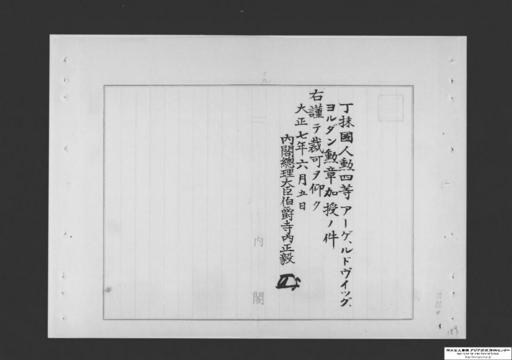 丁抹國人勲四等アーゲ、ルドヴイッグ、
ヨルダン勲章加授ノ件
右謹テ裁可ヲ仰ク
大正七年六月五日
内閣總理大臣伯爵寺内正毅
内閣